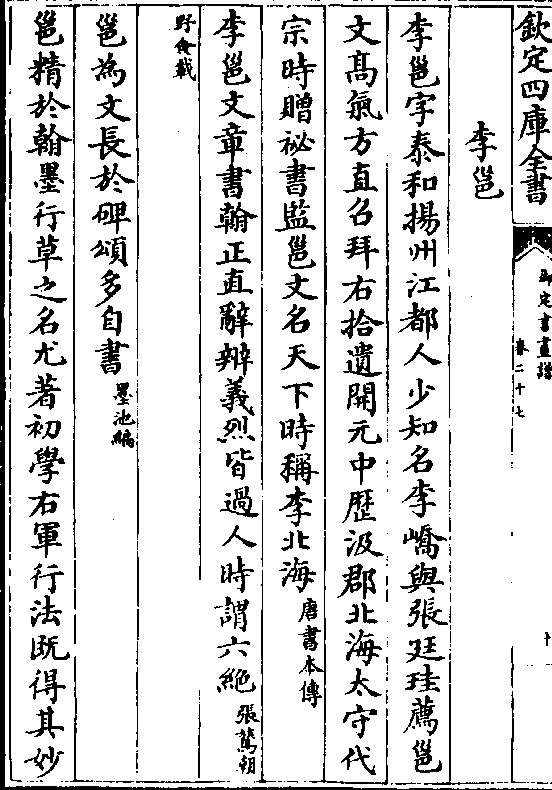 欽定四庫全書
御定書畫譜
卷二十七
十
李邕
李邕字泰和揚州江都人少知名李嶠與張廷珪薦邕
文髙氣方直召拜右拾遺開元中歴汲郡北海太守代
宗時贈祕書監邕文名天下時稱李北海唐書本傳
李邕文章書翰正直辭辨義烈皆過人時謂六絶張鷟朝
野僉載
邕為文長於碑頌多自書墨池編
邕精於翰墨行草之名尤著初學右軍行法既得其妙